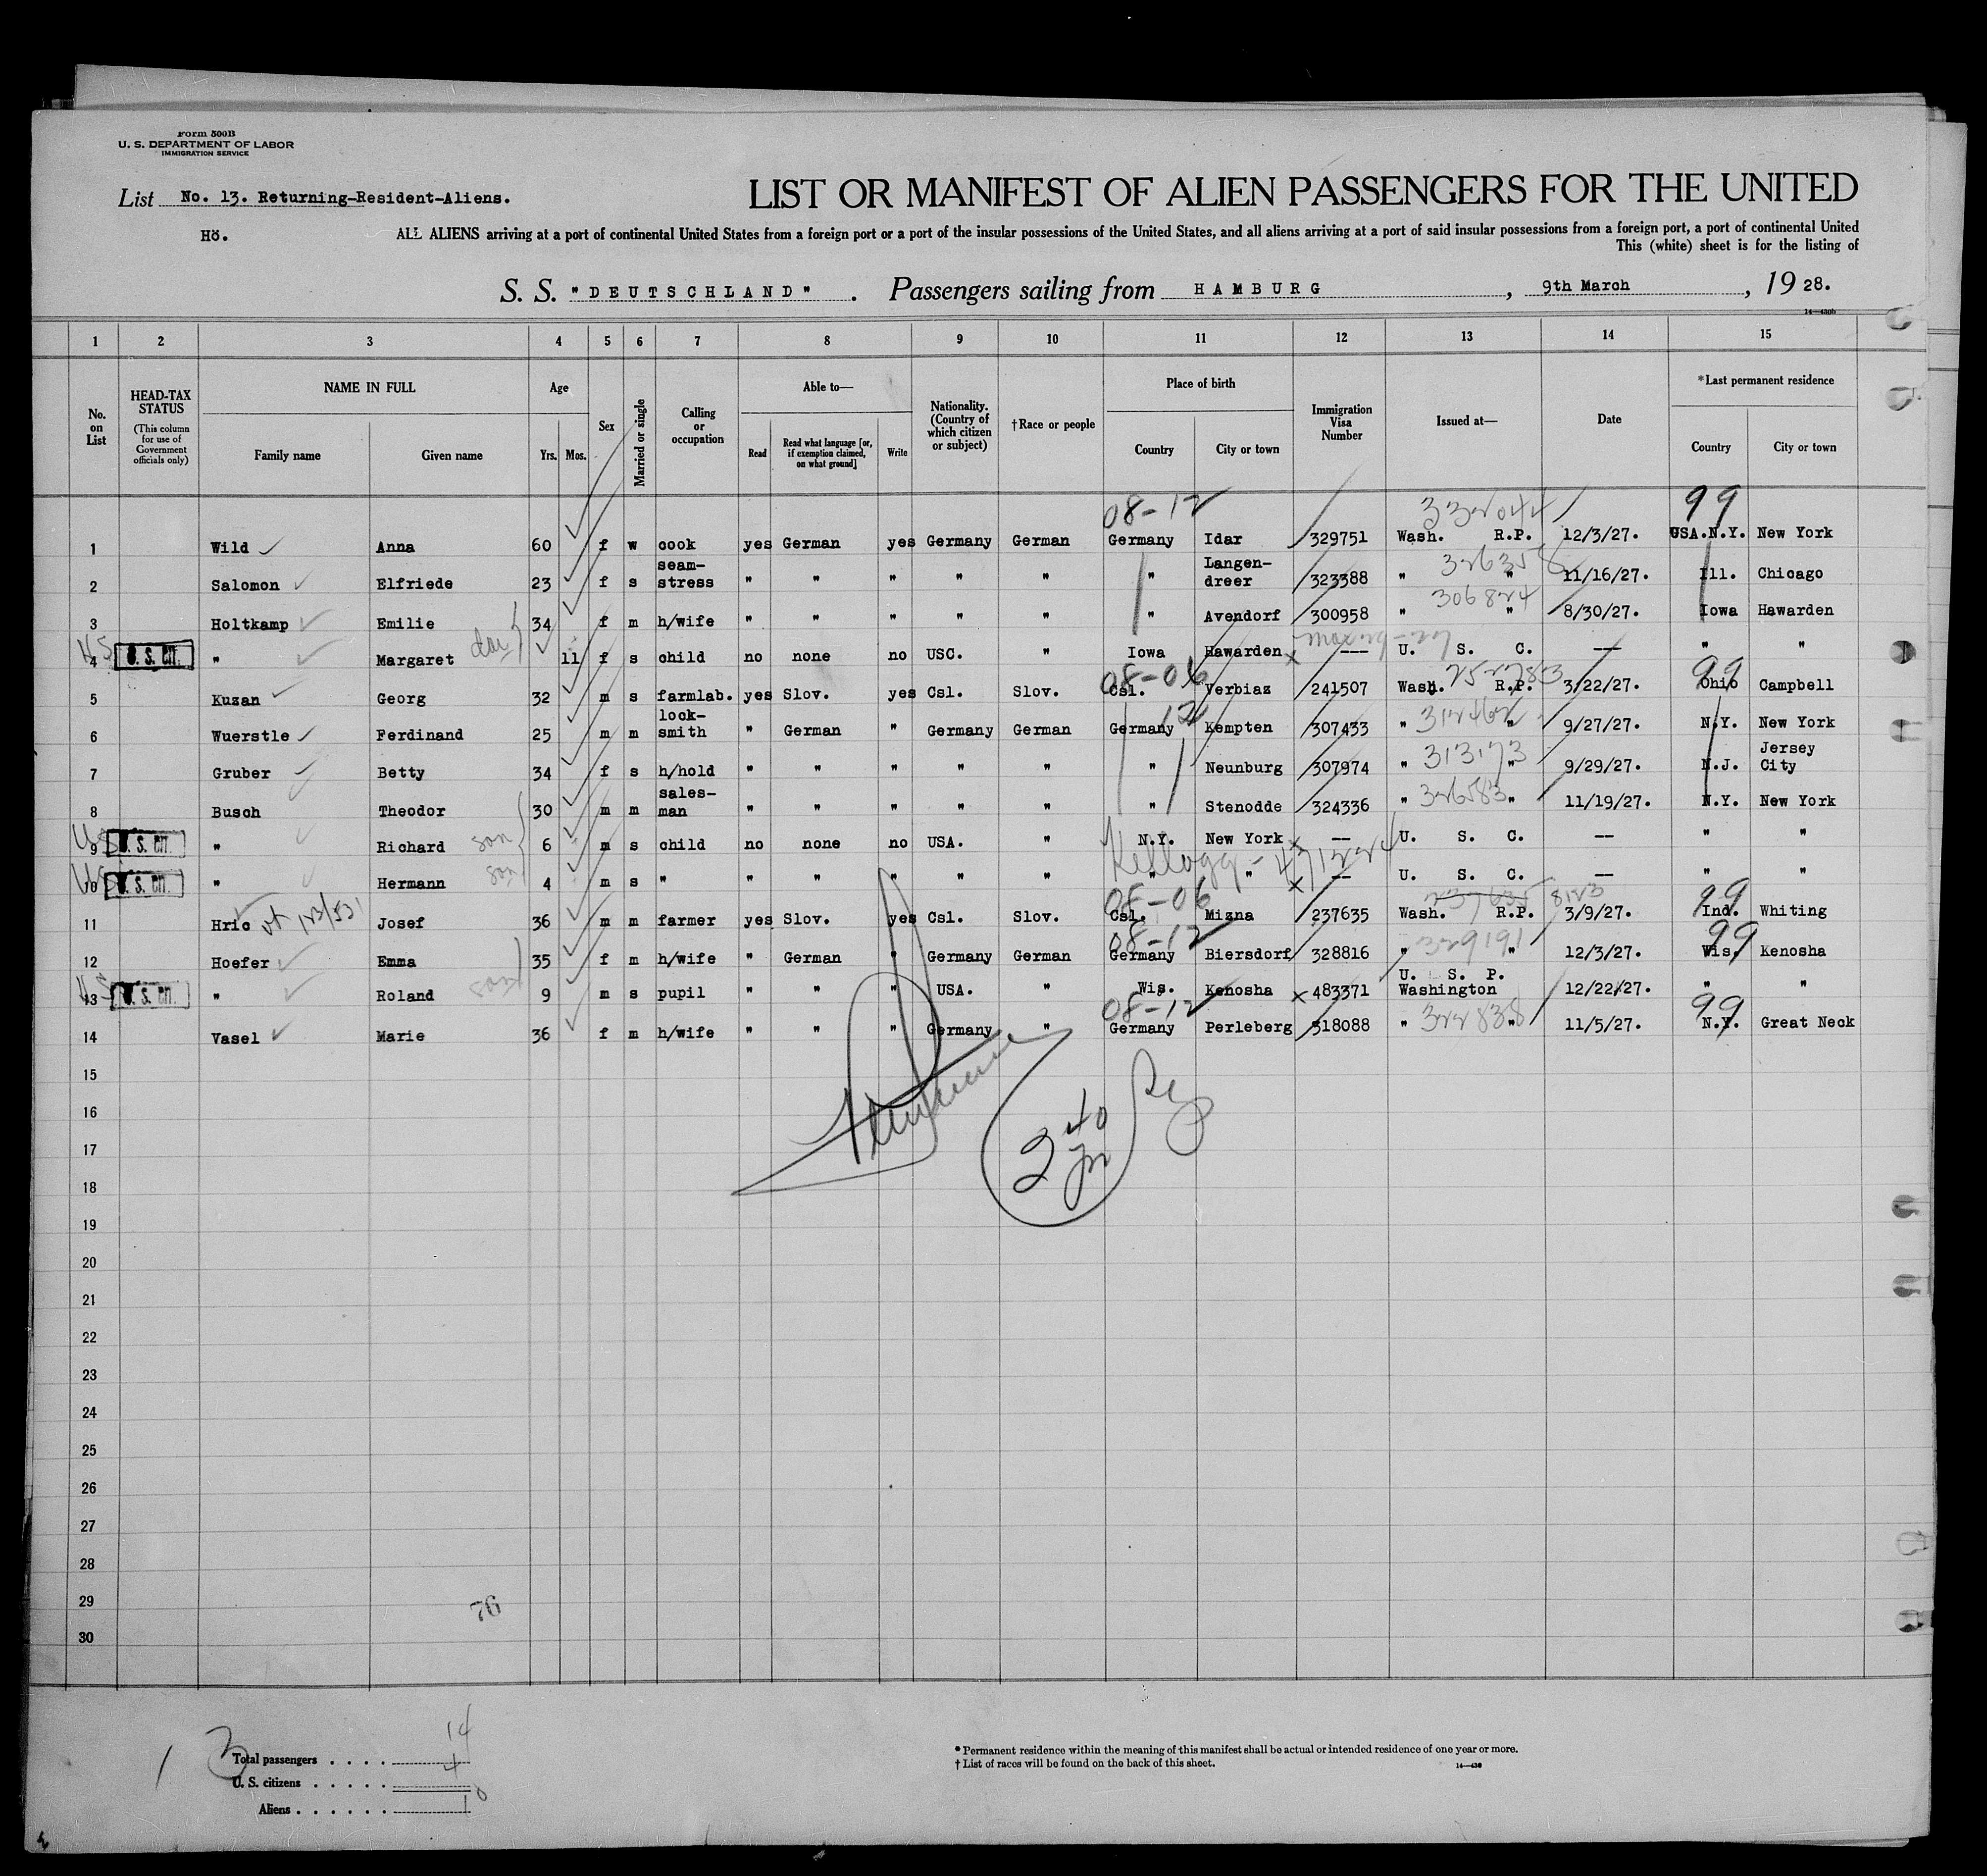 Form 500B
U. S. DEPARTMENT OF LABOR
IMMIGRATION SERVICE
List No. 13. Returning-Resident-Aliens.
LIST OR MANIFEST OF ALIEN PASSENGERS FOR THE UNITED
Hö.
ALL ALIENS arriving at a port of continental United States from a foreign port or a port of the insular possessions of the United States, and all aliens arriving at a port of said insular possessions from a foreign port, a port of continental United
This (white) sheet is for the listing of
S. S. "DEUTSCHLAND" . Passengers sailing from HAMBURG , 9th March , 19 28.
14—430b
1 2 3 4 5 6 7 8 9 10 11 12 13 14 15
No. on List
HEAD-TAX STATUS (This column for use of Government officials only)
NAME IN FULL Family name Given name
Age Yrs. Mos.
Sex
Married or single
Calling or occupation
Able to— Read Read what language [or, if exemption claimed, on what ground] Write
Nationality. (Country of which citizen or subject)
†Race or people
Place of birth Country City or town
Immigration Visa Number
Issued at—
Date
*Last permanent residence Country City or town
08-12 332044 99
1 Wild Anna 60 f w cook yes German yes Germany German Germany Idar 329751 Wash. R.P. 12/3/27. USA.N.Y. New York
2 Salomon Elfriede 23 f s seam-stress " " " " " " Langen-dreer 323388 " 326358 " 11/16/27. Ill. Chicago
3 Holtkamp Emilie 34 f m h/wife " " " " " " Avendorf 300958 " 306824 " 8/30/27. Iowa Hawarden
4 US U. S. CIT. " Margaret dau 11 f s child no none no USC. " Iowa Hawarden x --- U. S. C. -- " "
08-06 99
5 Kuzan Georg 32 m s farmlab. yes Slov. yes Csl. Slov. Csl. Verbiaz 241507 Wash. 252783 R.P. 3/22/27. Ohio Campbell
6 Wuerstle Ferdinand 25 m m lock-smith " German " Germany German Germany 12 Kempten 307433 " 312462 " 9/27/27. N.Y. New York
7 Gruber Betty 34 f s h/hold " " " " " " Neunburg 307974 " 313173 " 9/29/27. N.J. Jersey City
8 Busch Theodor 30 m m sales-man " " " " " " Stenodde 324336 " 326583 " 11/19/27. N.Y. New York
9 US U. S. CIT. " Richard son 6 m s child no none no USA. " N.Y. New York x -- U. S. C. -- " "
Kellogg - 471224
10 US U. S. CIT. " Hermann son 4 m s " " " " " " " " x -- U. S. C. -- " "
08-06 99
11 Hric Josef 36 m m farmer yes Slov. yes Csl. Slov. Csl. Mizna 237635 Wash. R.P. 3/9/27. Ind. Whiting
08-12 99
12 Hoefer Emma 35 f m h/wife " German " Germany German Germany Biersdorf 328816 " 329191 " 12/3/27. Wis. Kenosha
13 U. S. CIT. " Roland son 9 m s pupil " " " USA. " Wis. Kenosha x 483371 U. S. P. Washington 12/22/27. " "
08-12 99
14 Vasel Marie 36 f m h/wife " " " Germany " Germany Perleberg 318088 " 322838 " 11/5/27. N.Y. Great Neck
15
16
17
18
19
20
21
22
23
24
25
26
27
28
29
76
30
1 3
Total passengers . . . . 14
U. S. citizens . . . . . 4
Aliens . . . . . . 10
* Permanent residence within the meaning of this manifest shall be actual or intended residence of one year or more.
† List of races will be found on the back of this sheet.
14—430